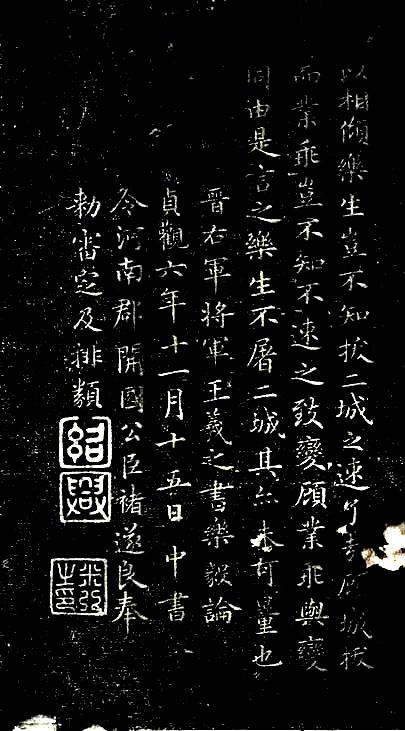 以相傾樂生豈不知拔二城之速了哉顧城拔
而業乖豈不知不速之致變顧業乖與變
同由是言之樂生不屠二城其亦未可量也
晉右軍將軍王羲之書樂毅論
貞觀六年十一月十五日中書
令河南郡開國公臣褚遂良奉
勑審定及排類
紹興